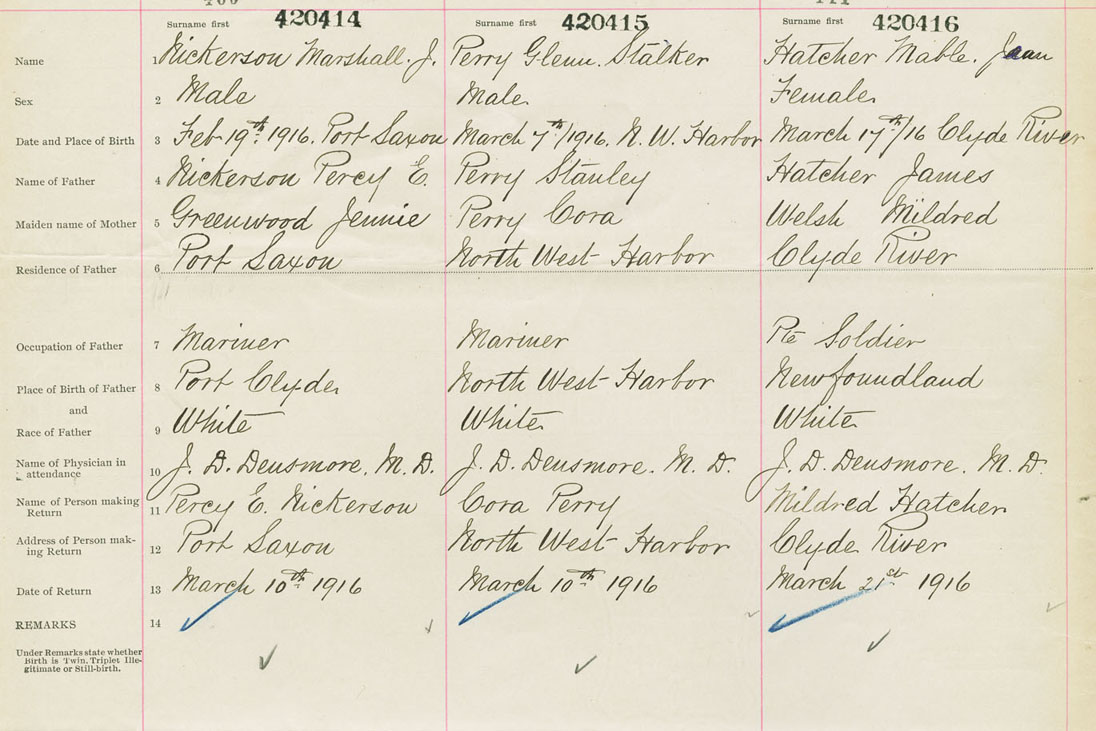 Surname first 420414 Surname first 420415 Surname first 420416
Name 1 Nickerson Marshall. J. Perry Glenn. Stalker Hatcher Mable. Jean
Sex 2 Male Male. Female.
Date and Place of Birth 3 Feb 19th 1916. Port Saxon March 7th/1916. N. W. Harbor March 17th/16 Clyde River
Name of Father 4 Nickerson Percy E. Perry Stanley Hatcher James
Maiden name of Mother 5 Greenwood Jennie Perry Cora Welsh Mildred
Residence of Father 6 Port Saxon North West Harbor Clyde River
Occupation of Father 7 Mariner Mariner Pte Soldier
Place of Birth of Father 8 Port Clyde. North West Harbor Newfoundland
and
Race of Father 9 White White. White.
Name of Physician in
attendance 10 J. D. Densmore. M. D. J. D. Densmore. M. D. J. D. Densmore. M. D.
Name of Person making
Return 11 Percy E. Nickerson Cora Perry Mildred Hatcher
Address of Person mak-
ing Return 12 Port Saxon North West Harbor Clyde River
Date of Return 13 March 10th 1916 March 10th 1916 March 21st 1916
REMARKS 14
Under Remarks state whether
Birth is Twin, Triplet Ille-
gitimate or Still-birth.